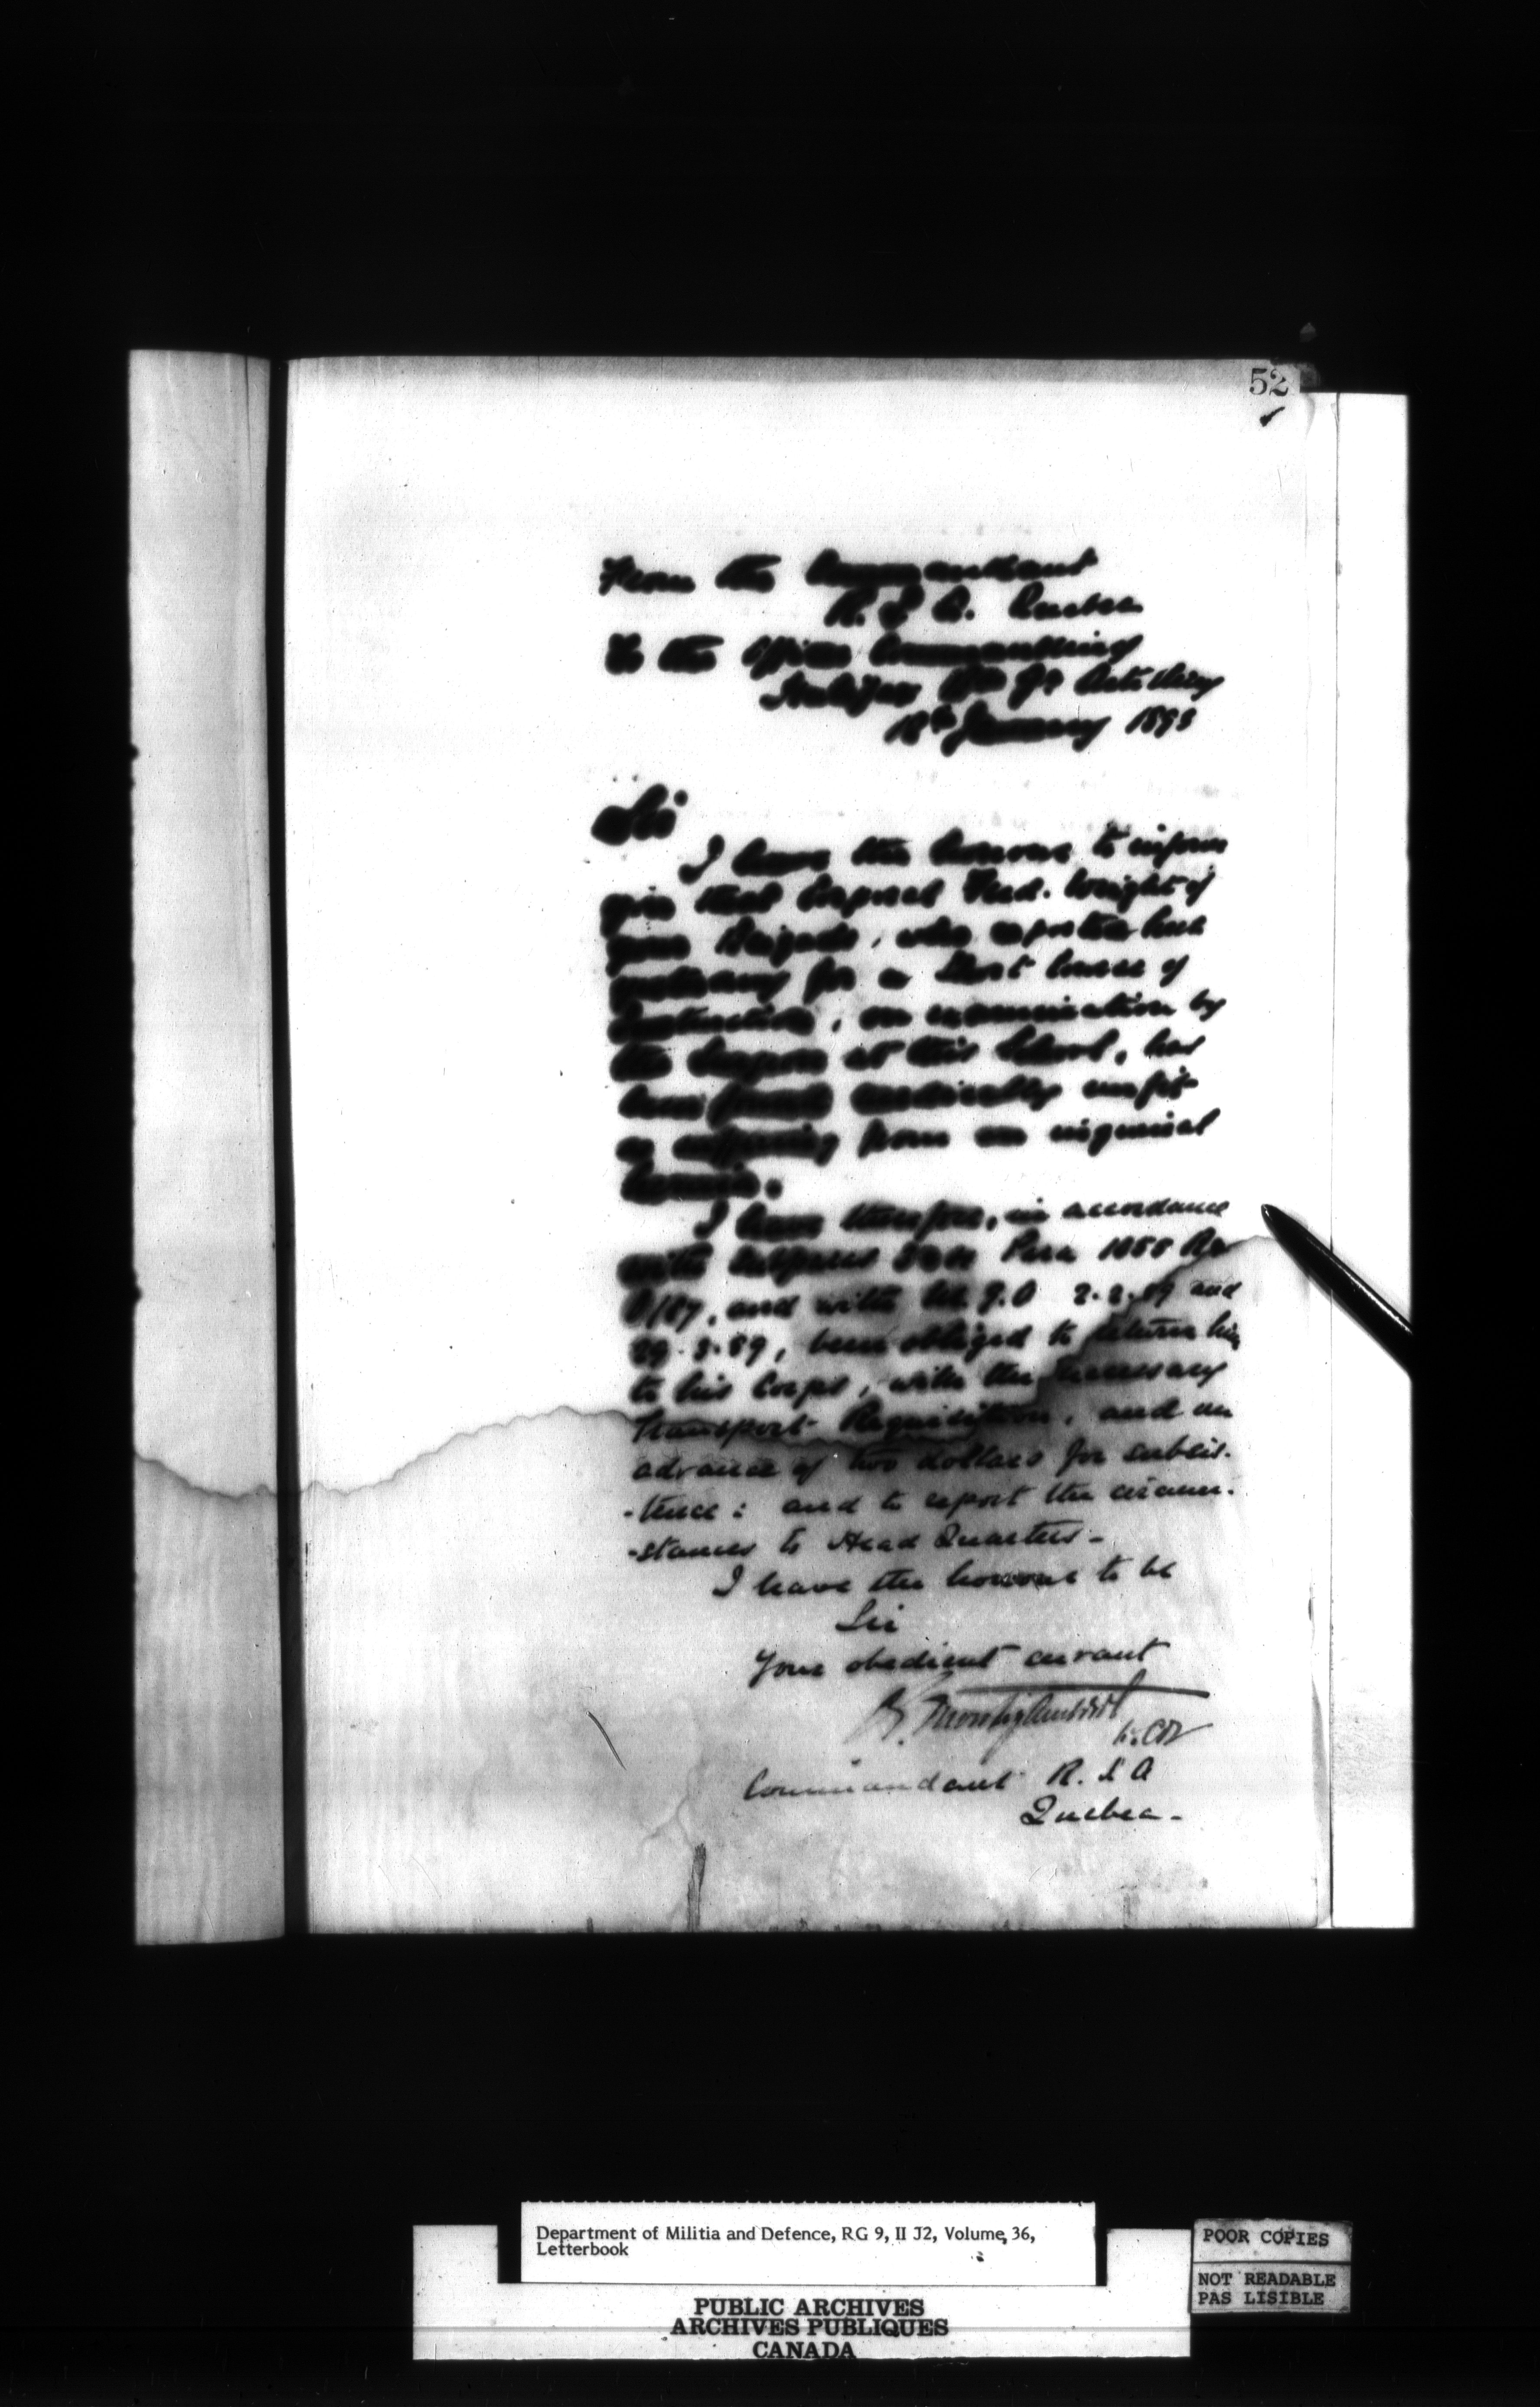 52
From the Commandant
R. S. A. Quebec
To the Officer Commanding
Halifax Bde Gn Artillery
18th January 1893
Sir
I have the honour to inform
you that Corporal Fred. Wright of
your Brigade, who reported here
yesterday for a Short Course of
Instruction, on examination by
the Surgeon at this School, has
been found medically unfit
as suffering from an inguinal
hernia.
I have therefore, in accordance
with Para 1055 R &
O/87, and with G.O 2.2.89 and
29.3.89, been obliged to return him
to his Corps, with the necessary
Transport Requisition, and an
advance of two dollars for subsis-
-tence: and to report the circum-
-stances to Head Quarters -
I have the honour to be
Sir
Your obedient servant
Lt. Col
Commandant R. S. A
Quebec -
Department of Militia and Defence, RG 9, II J2, Volume 36,
Letterbook
POOR COPIES
NOT READABLE
PAS LISIBLE
PUBLIC ARCHIVES
ARCHIVES PUBLIQUES
CANADA